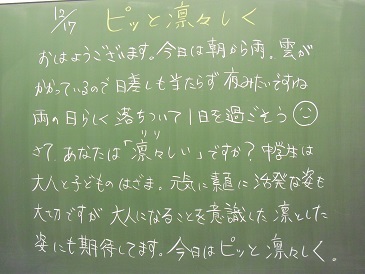 12/17 ピッと凛々しく
おはようございます。今日は朝から雨。雲が
かかっているので日差しも当たらず夜みたいですね
雨の日らしく落ちついて1日を過ごそう
さて、あなたは「凛々しい」ですか？中学生は
リリ
大人と子どものはざま。元気に素直に活発な姿も
大切ですが大人になることを意識した凛とした
姿にも期待してます。今日はピッと凛々しく。